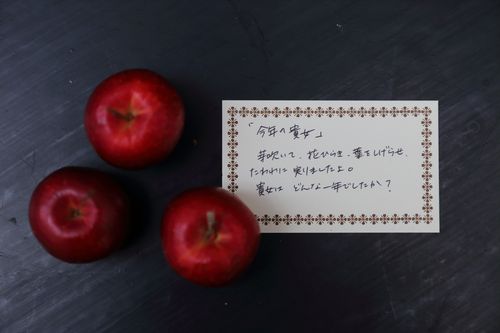 「今年の貴女」
芽吹いて、花ひらき、葉をしげらせ、
たわわに実りましたよ。
貴女は どんな一年でしたか？